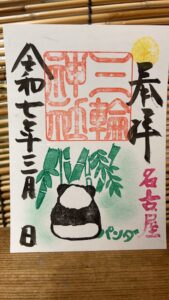 奉拝
三輪
神社
名古屋
令和七年三月 日
パンダ